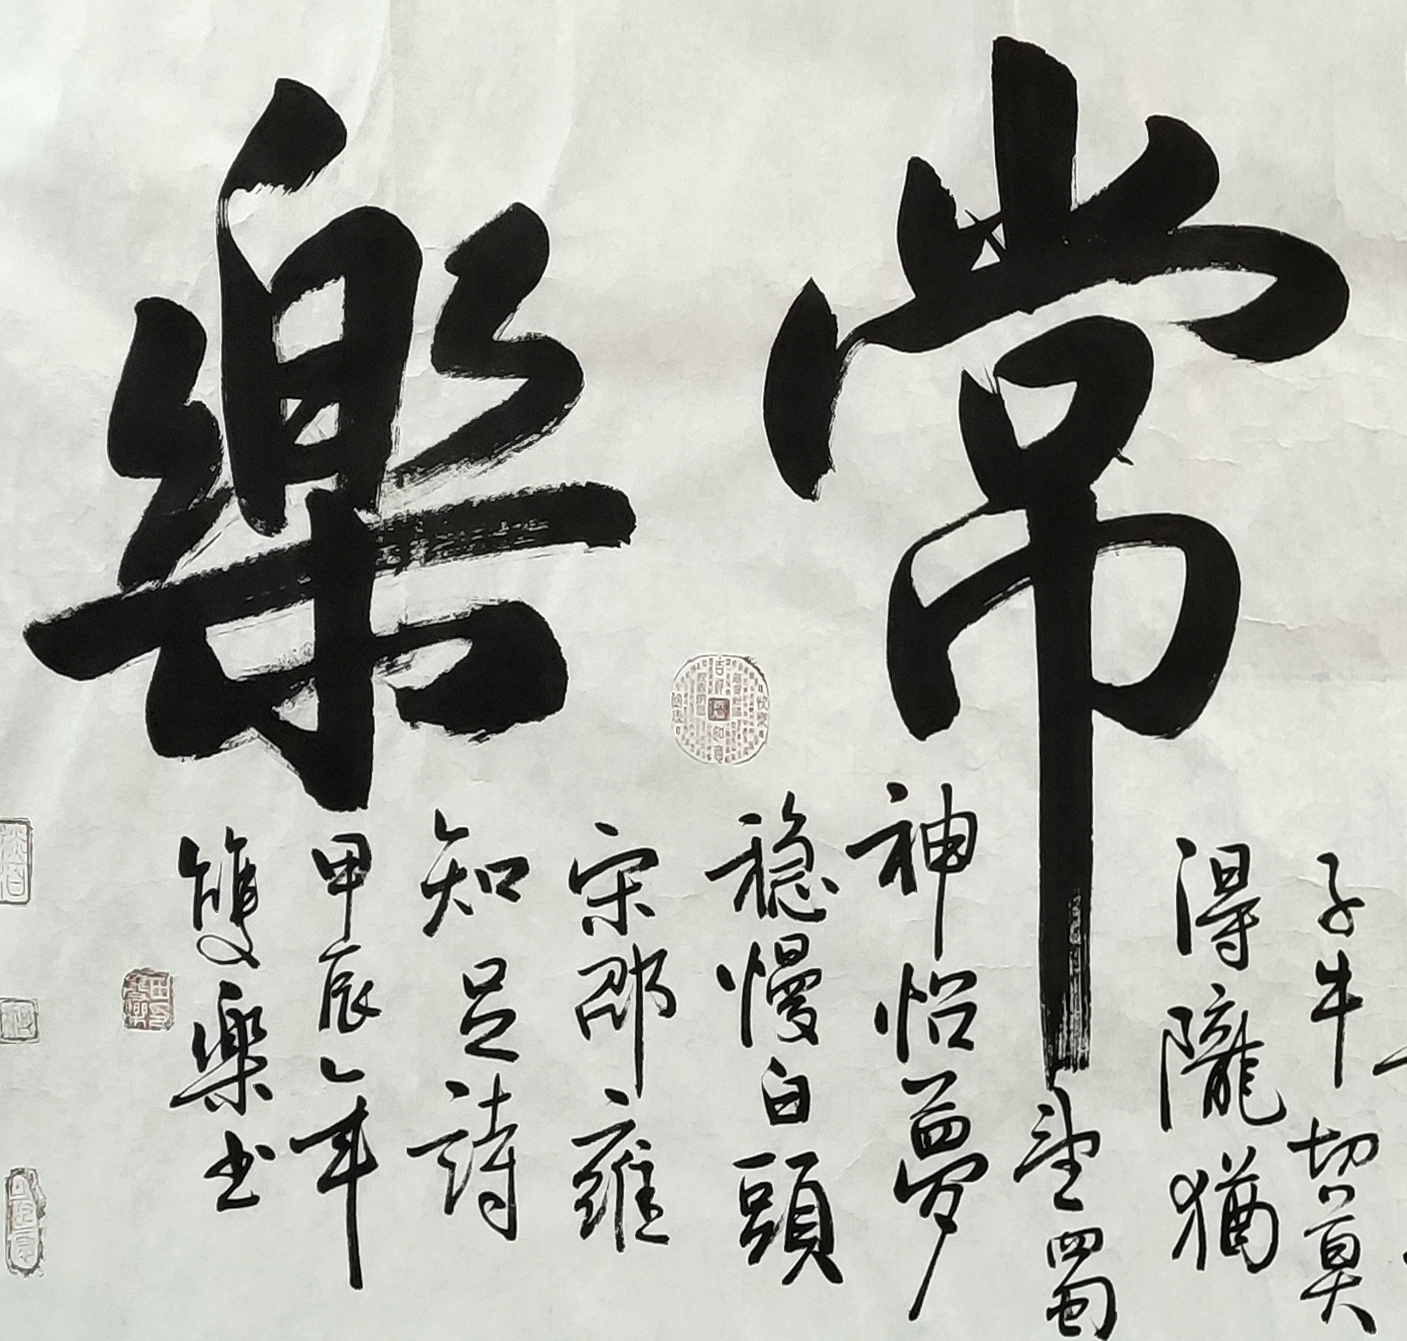 常樂
子牛切莫
得隴猶
望蜀
神怡夢
穏慢白頭
宋邵雍
知足詩
甲辰年
雙樂书